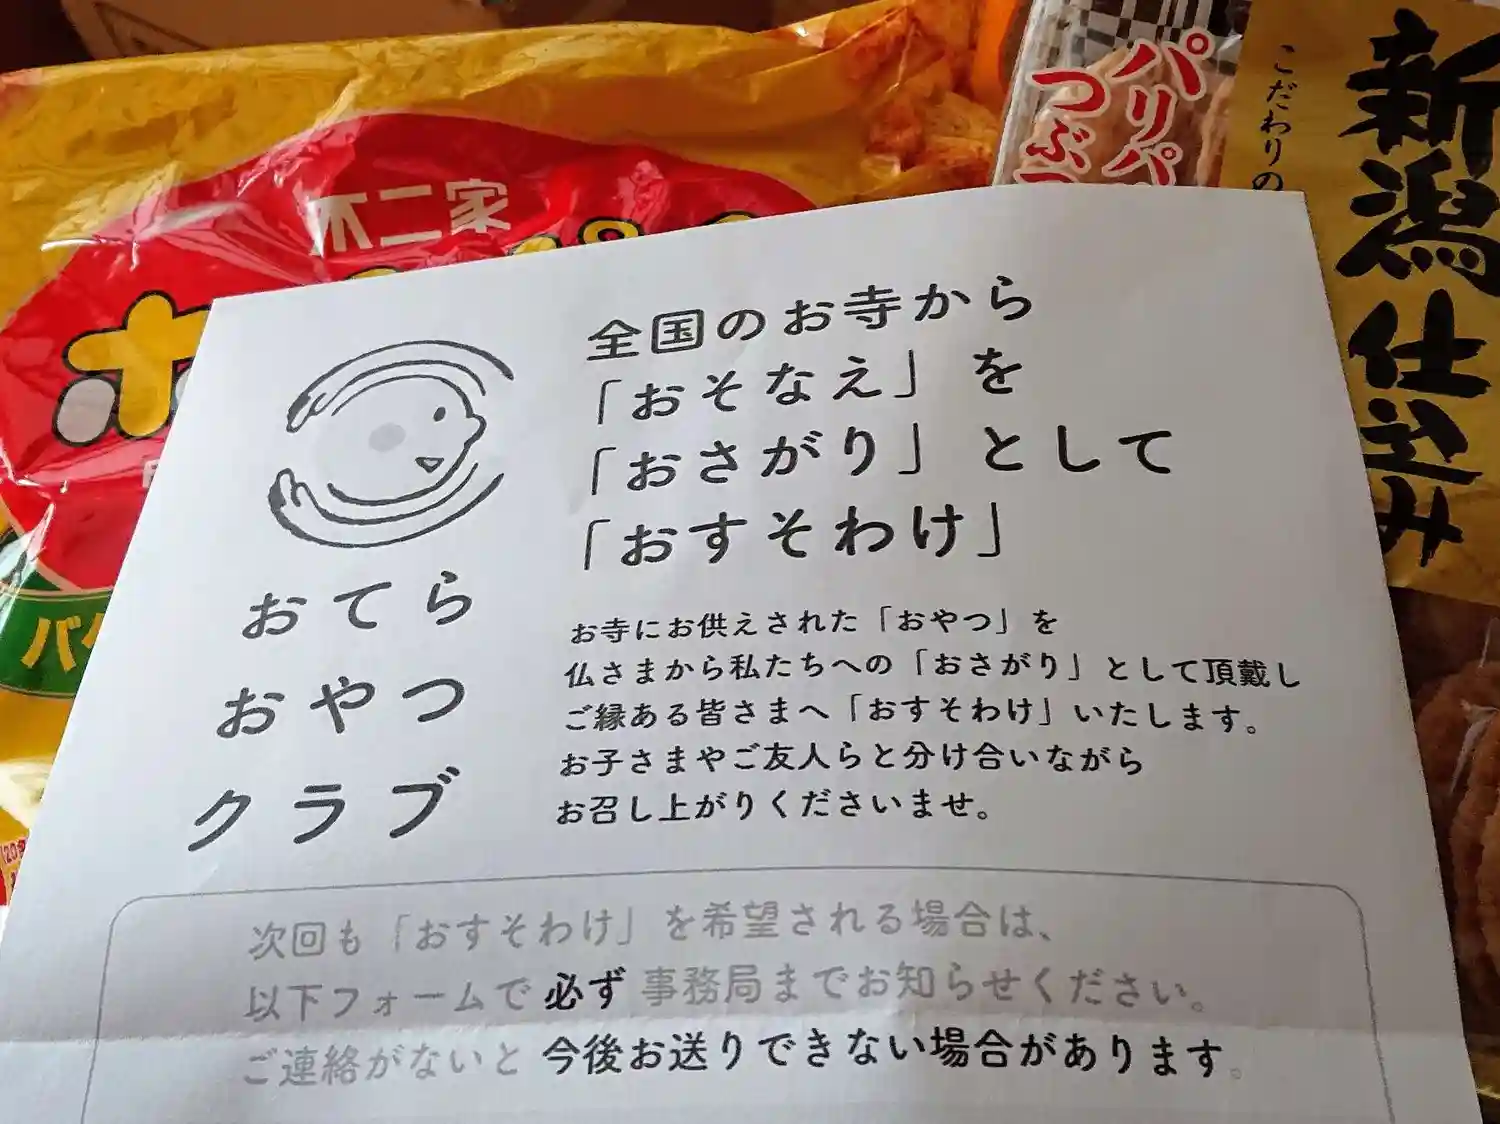 不二家
パリパリ
つぶ
こだわりの
新潟仕込み
おてら
おやつ
クラブ
全国のお寺から
「おそなえ」を
「おさがり」として
「おすそわけ」
お寺にお供えされた「おやつ」を
仏さまから私たちへの「おさがり」として頂戴し
ご縁ある皆さまへ「おすそわけ」いたします。
お子さまやご友人らと分け合いながら
お召し上がりくださいませ。
次回も「おすそわけ」を希望される場合は、
以下フォームで必ず事務局までお知らせください。
ご連絡がないと今後お送りできない場合があります。